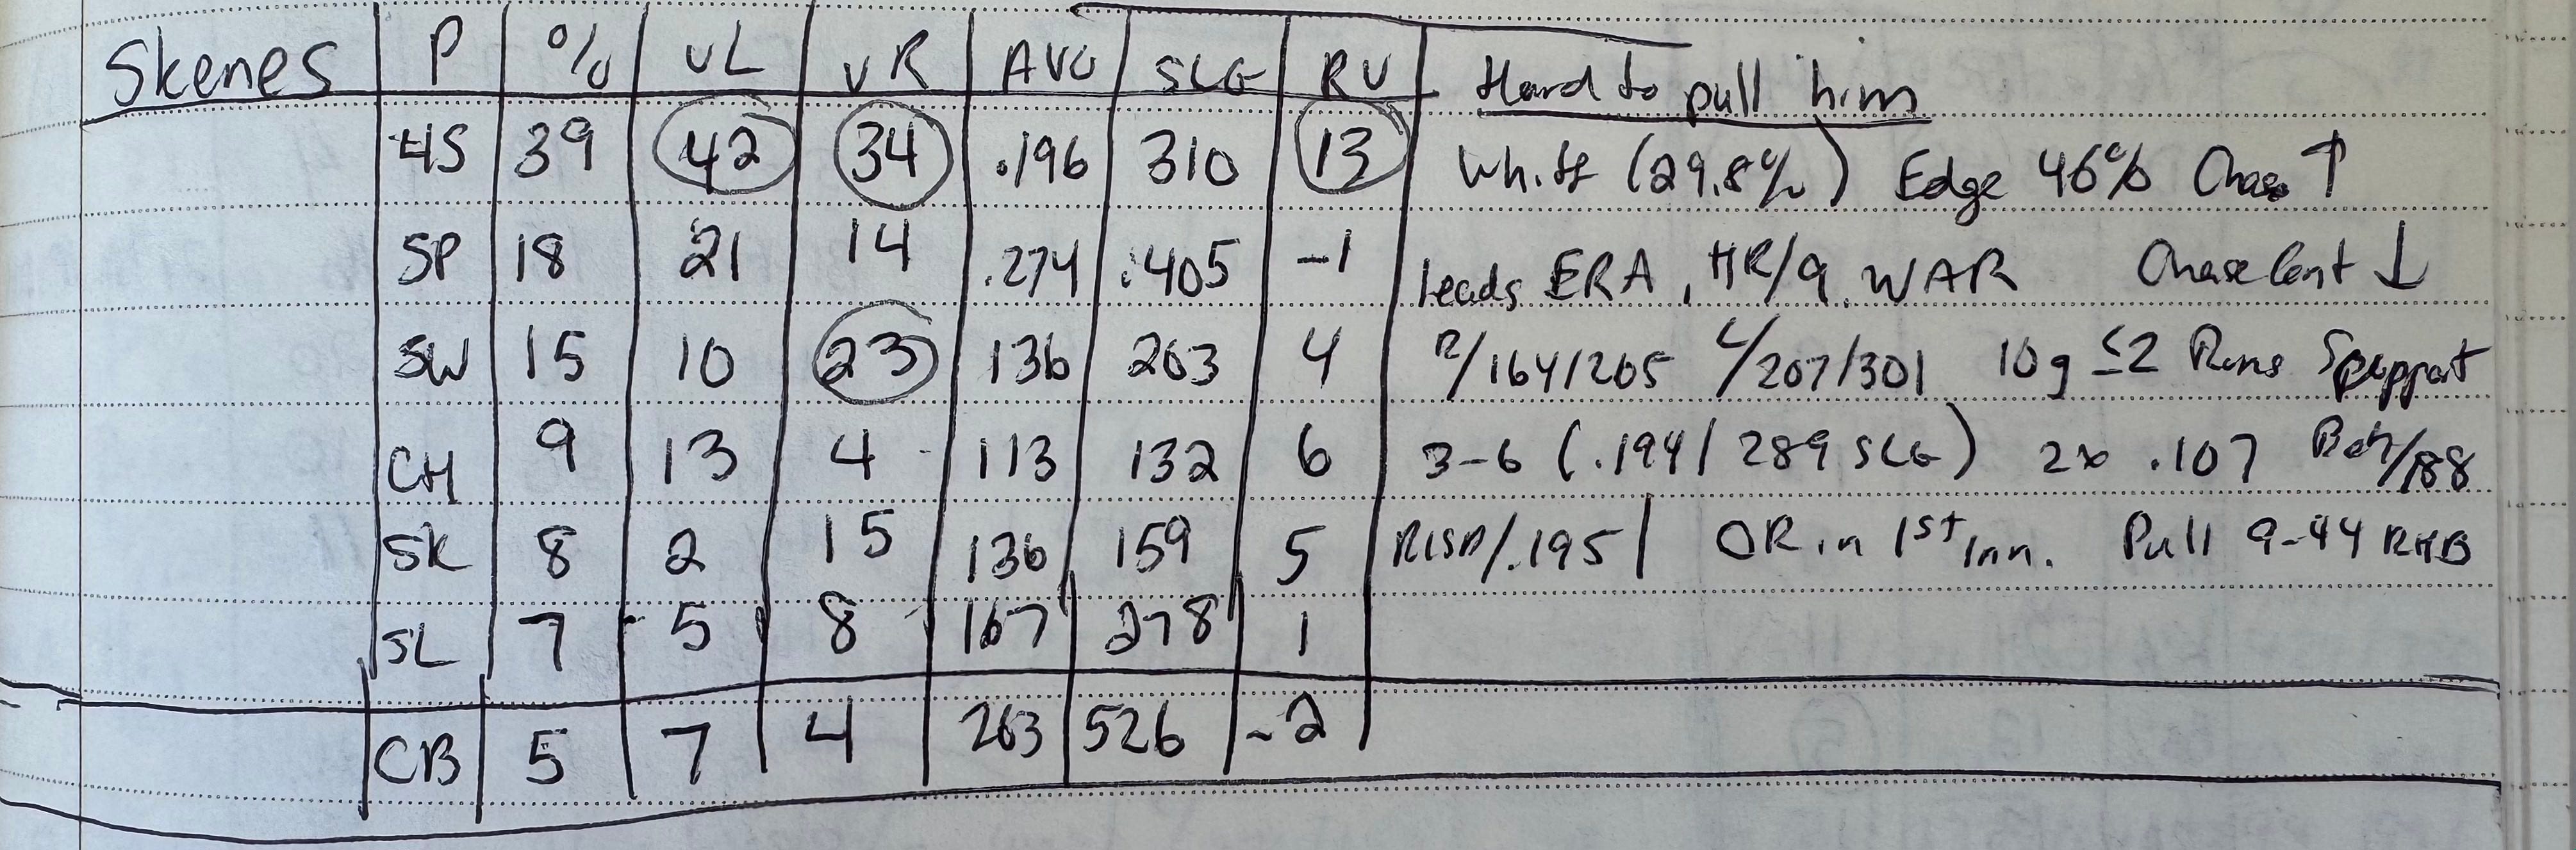 Skenes P % vL vR AVG SLG RV Hard to pull him
4S 39 42 34 .196 310 13 Whiff (29.8%) Edge 46% Chase ↑
SP 18 21 14 .274 .405 -1 leads ERA, HR/9, WAR Chase Cont ↓
SW 15 10 23 136 263 4 R/164/205 L/207/301 10g ≤2 Runs Support
CH 9 13 4 113 132 6 3-6 (.194/289 SLG) 2x .107
SK 8 2 15 136 159 5 RISP/.195 | OR in 1st inn. Pull 9-44 RHB
SL 7 5 8 167 278 1
CB 5 7 4 263 526 -2